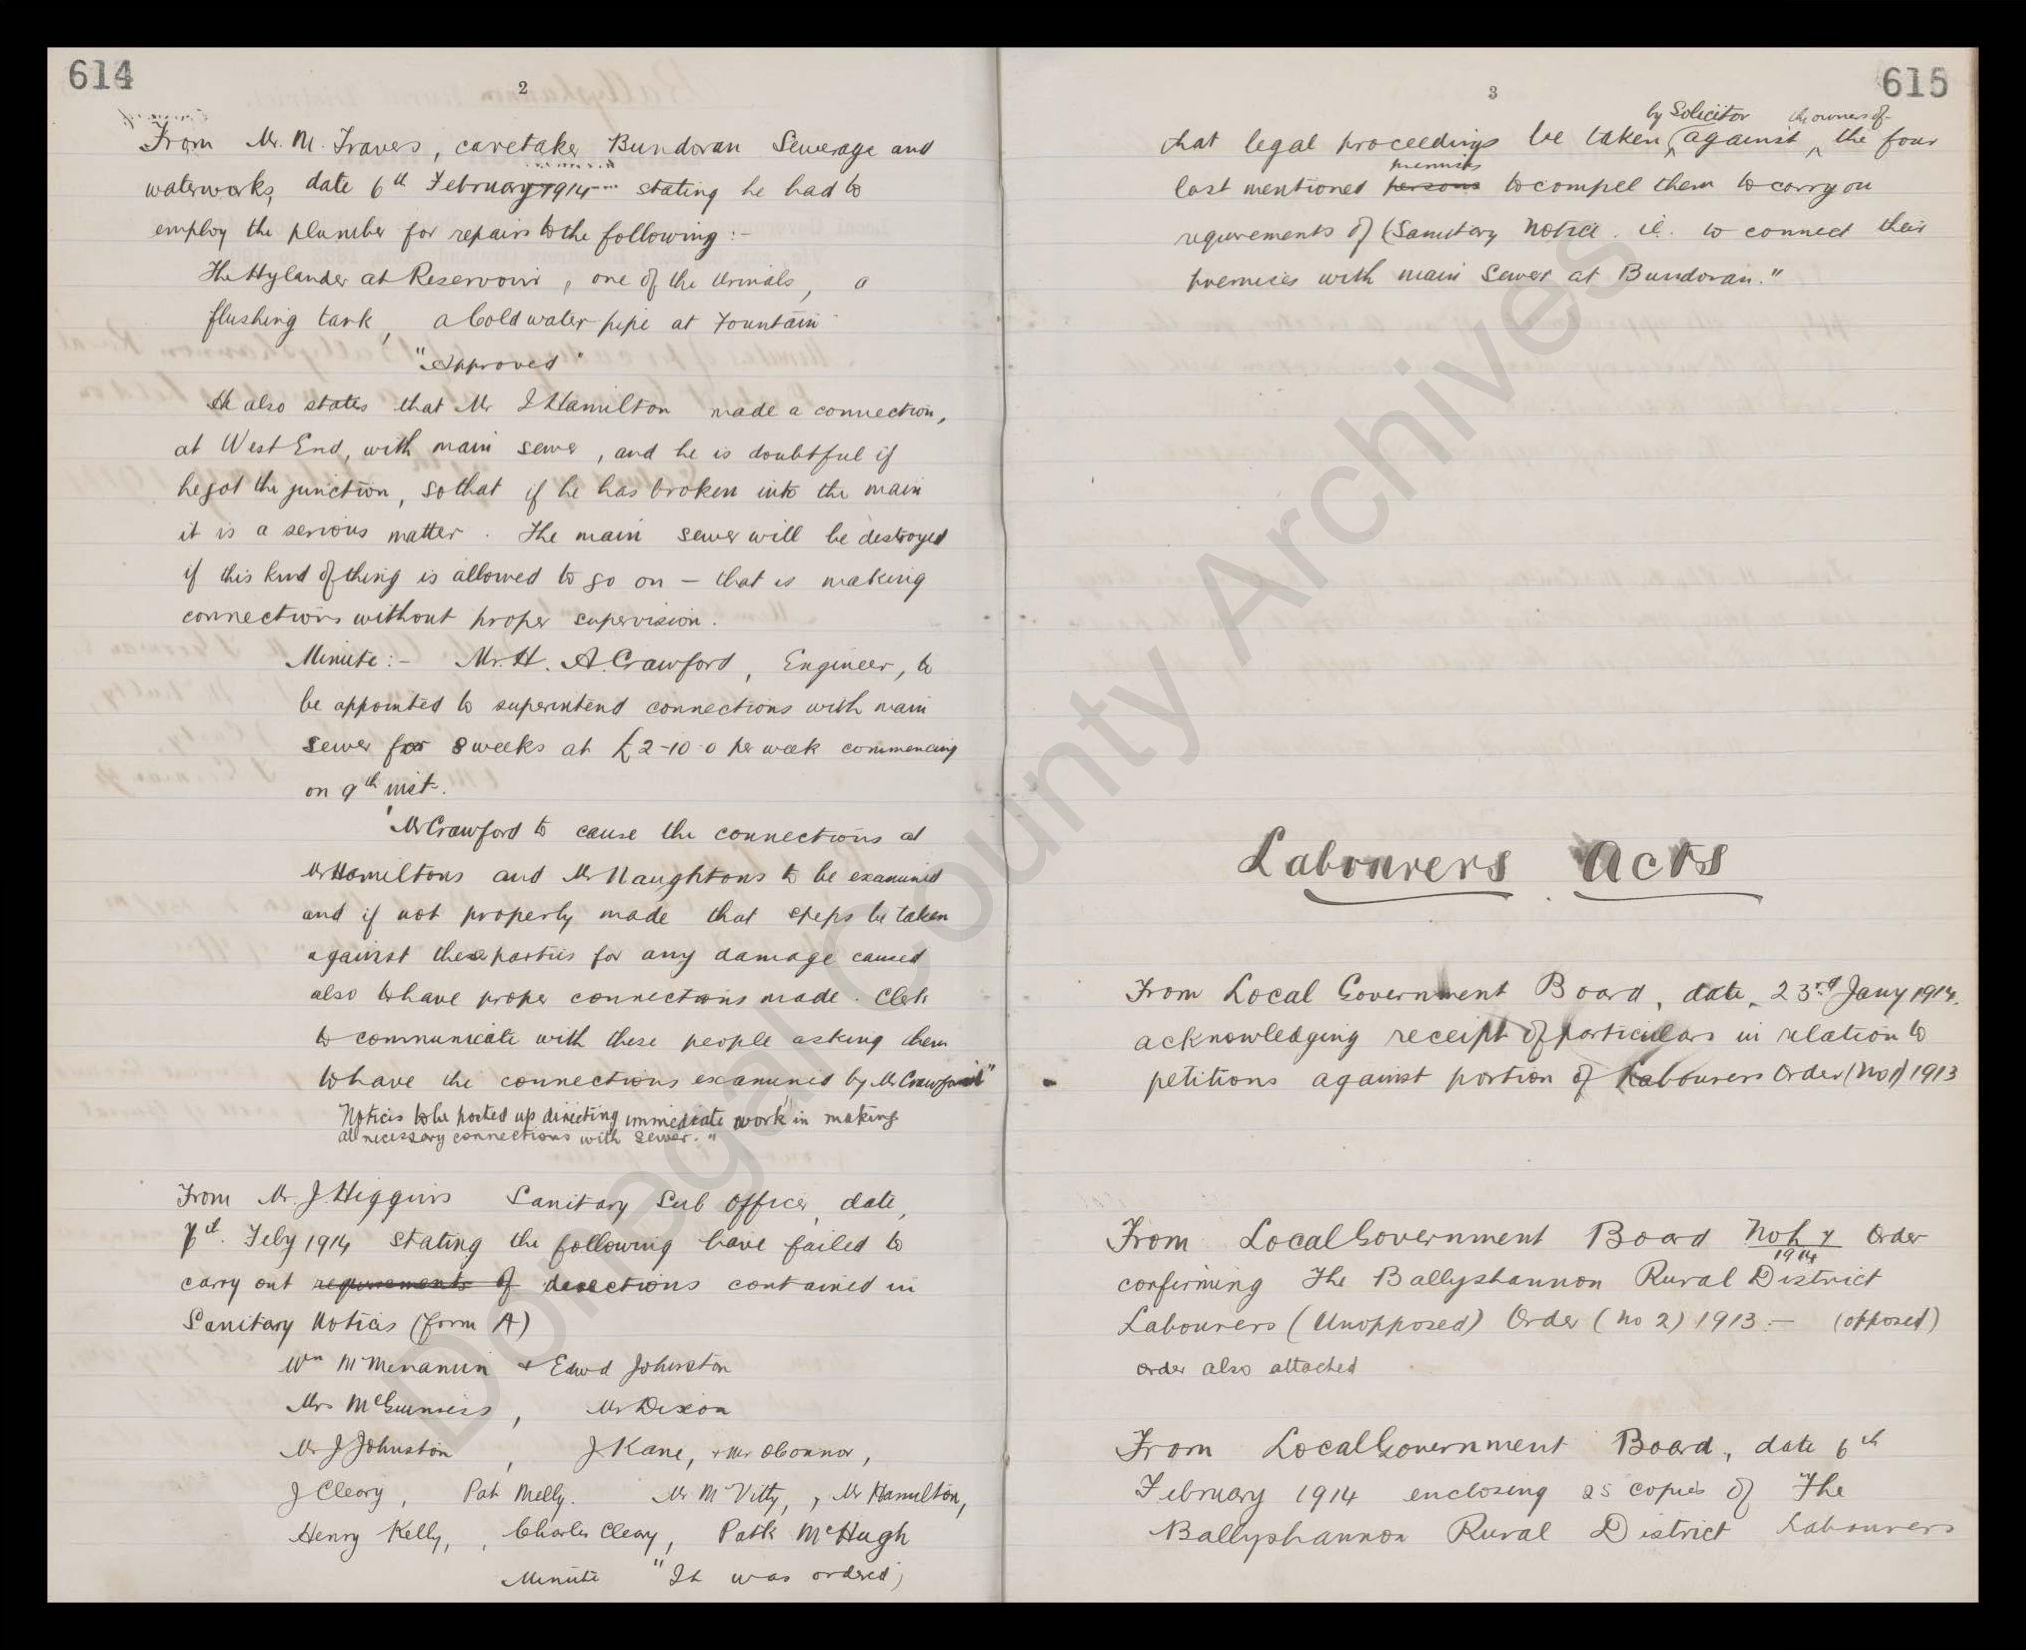 614
2
From Mr. M. Travers, caretaker Bundoran Sewerage and
waterworks, date 6th February 1914 stating he had to
employ the plumber for repairs to the following :-
The Hylander at Reservoir, one of the Urinals, a
flushing tank, a Cold water pipe at Fountain
"Approved"
He also states that Mr J Hamilton made a connection,
at West End, with main sewer, and he is doubtful if
he got the junction, so that if he has broken into the main
it is a serious matter. The main sewer will be destroyed
if this kind of thing is allowed to go on — that is making
connections without proper supervision.
Minute :- Mr. H. A. Crawford, Engineer, to
be appointed to superintend connections with main
sewer for 8 weeks at £2-10-0 per week commencing
on 9th inst.
Mr Crawford to cause the connections at
Mr Hamiltons and Mr Naughtons to be examined
and if not properly made that steps be taken
against these parties for any damage caused
also to have proper connections made. Clerk
to communicate with these people asking them
to have the connections examined by Mr Crawford"
Notices to be posted up directing immediate work in making
all necessary connections with sewer."
From Mr. J. Higgins Sanitary Sub Officer, date,
7th Feby 1914 stating the following have failed to
carry out requirements of directions contained in
Sanitary Notices (form A)
Wm McMenamin & Edwd Johnston
Mrs McGuiness, Mr Dixon
Mr J Johnston, J Kane, & Mr OConnor,
J Cleary, Pat Melly. Mr McVitty, , Mr Hamilton,
Henry Kelly, , Charles Cleary, Patk McHugh
Minute "It was ordered,
615
3
by Solicitor the owners of
that legal proceedings be taken against the four
premises
last mentioned persons to compel them to carry on
requirements of (Sanitary Notice. i.e. to connect their
premises with main sewer at Bundoran."
Labourers Acts
From Local Government Board, date, 23rd Jany 1914,
acknowledging receipt of particulars in relation to
petitions against portion of Labourers Order (No 1) 1913
From Local Government Board Order
1914
confirming The Ballyshannon Rural District
Labourers (Unopposed) Order (No 2) 1913 :— (opposed)
order also attached
From Local Government Board, date 6th
February 1914 enclosing 25 copies of The
Ballyshannon Rural District Labourers
Donegal County Archives